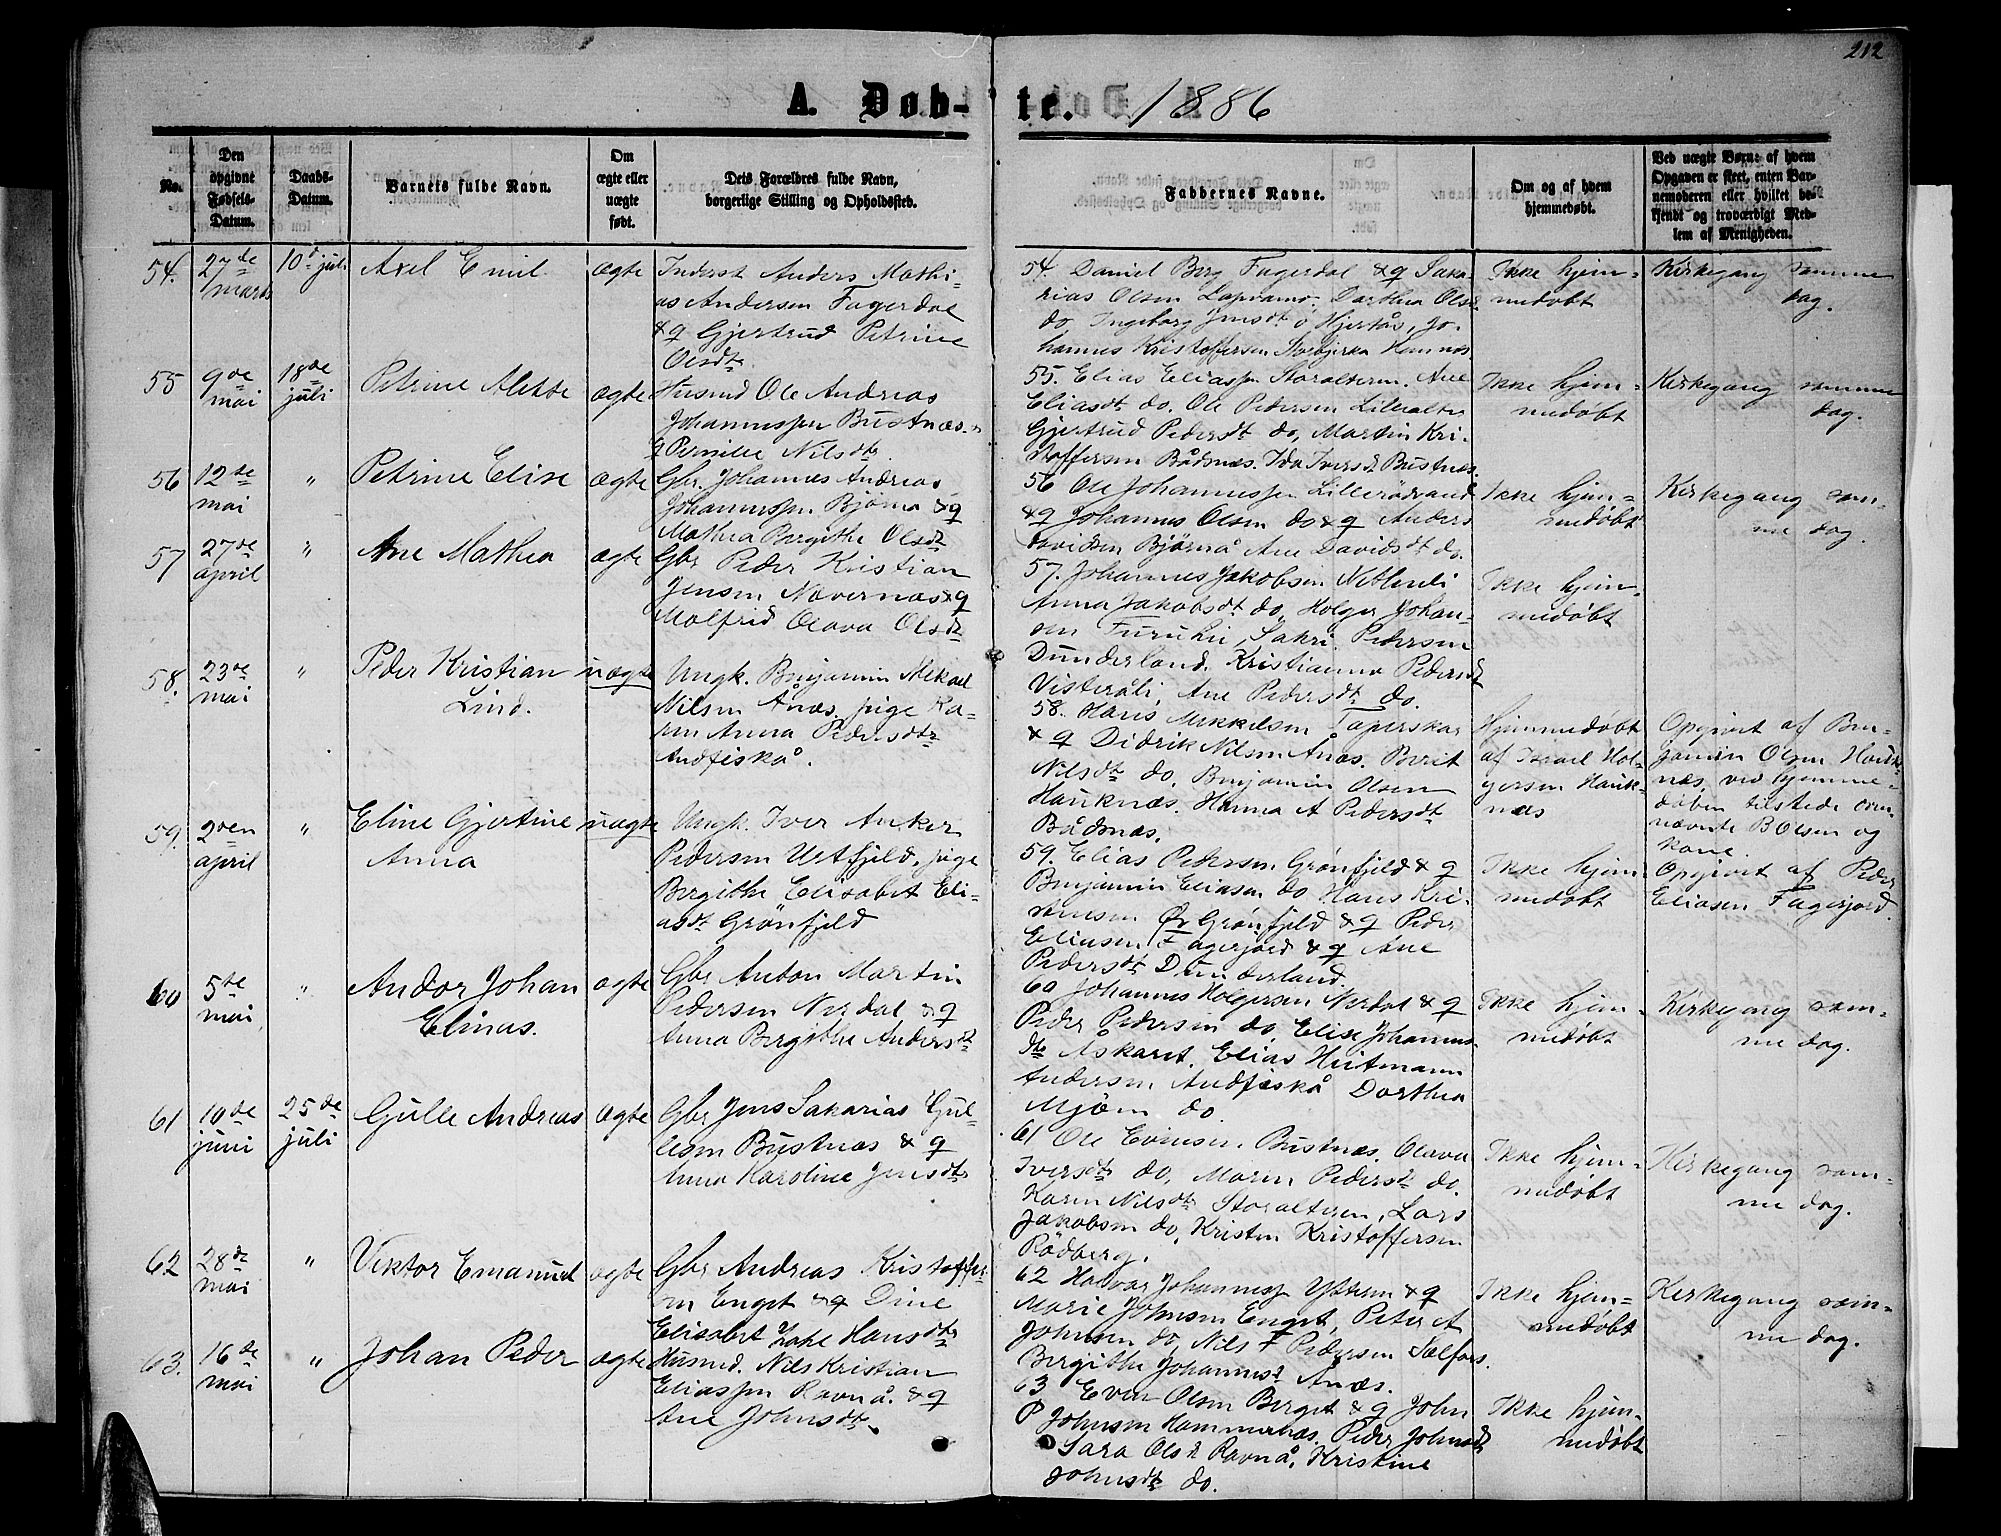 212
A. Døb-te. 1886
No.
Den opgivne Fødsels-Datum.
Daabs-Datum.
Barnets fulde Navn.
Om ægte eller uægte født.
Dets Forældres fulde Navn, borgerlige Stilling og Opholdssted.
Faddernes Navne.
Om og af hvem hjemmedøbt.
Ved uægte Børn: af hvem Opgaven er skeet, enten Barnemoderen eller hvilket bekjendt og troværdigt Medlem af Menigheden.
54. 27de marts 10de juli Axel Emil ægte
Inderst Anders Mathi-
as Andersen Fagerdal
& q Gjertrud Petrine
Olsdtr
54. Daniel Berg Fagerdal & q Saka-
rias Olsen Lapramo, Dorthea Olsdt
do, Ingeborg Jensdt Hjertås, Jo-
hannes Kristoffersen Storbjerka Hemnes
Ikke hjem-
medøbt
Kirkegang samme
dag.
55 9de mai 18de juli Petrine Alette ægte
Husmd Ole Andreas
Johannessen Bustnæs
& Pernille Nilsdtr
55. Elias Eliassen Storalteren. Ane
Eliasdt do. Ole Pedersen Lillealter
Gjertrud Pedersdt do, Martin Kri-
stoffersen Bådsnæs. Ida Iversd Bustnes
Ikke hjem-
medøbt
Kirkegang samme
dag.
56 12te mai " Petrine Elise ægte
Gbr. Johannes Andreas
Johannessen Bjørnå & q
Mathea Bergithe Olsdt
56 Ole Johannessen Lillerödvand
& q Johannes Olsen do & q Anders
Davidsen Bjørnå Ane Davidsdt do.
Ikke hjem-
medøbt
Kirkegang sam-
me dag.
57 27de april " Ane Mathea ægte
Gbr Peder Kristian
Jensen Nævernæs & q
Molfrid Olava Olsdt
57. Johannes Jakobsen Netlenli
Anna Jakobsdt do, Holger Johan-
sen Furuhei, Sakri Pedersen
Dunderland. Kristianna Pedersdt
Visteråli, Ane Pedersdt do.
Ikke hjem-
medøbt
58. 23de mai " Peder Kristian
Lind.
uægte
Ungk. Benjamin Mikael
Nilsen Ånæs, pige Ka-
ren Anna Pedersdtr
Andfiskå.
58. Hans Mikkelsen Tapeskar
& q Didrik Nilsen Ånæs. Berit
Nilsdt do. Benjamin Olsen
Hauknæs. Hanna A Pedersdt
Bådsnæs.
Hjemmedøbt
af Israel Hol-
gersen Hauk-
næs
Opgivet af Ben-
jamin Olsen Hauk-
næs, ved hjemme-
dåben tilstede oven-
nævnte B Olsen og
kone
59. 2den april " Eline Gjertine
Anna
uægte
Ungk. Iver Anker
Pedersen Urtfjeld, pige
Bergithe Elisabet Eli-
asdt Grönfjeld
59. Elias Pedersen Grønfjeld & q
Benjamin Eliasen do Hans Kri-
stensen Øv Grönfjeld & q Peder
Eliasen Fagerjord & q Ane
Pedersdt Dunderland.
Ikke hjem
medøbt
Opgivet af Peder
Eliasen Fagerjord.
60 5te mai " Andor Johan
Elinas.
ægte
Gbr Anton Martin
Pedersen Nerdal & q
Anna Bergithe Andersdt
60 Johannes Holgersen Nerdal & q
Peder Pedersen do, Elise Johannes-
dtr Askaret. Elias Heitmann
Andersen Andfiskå Dorthea
Mjöen do
Ikke hjem-
medøbt
Kirkegang sam-
me dag.
61 10de juni 25de juli Gulle Andreas ægte
Gbr Jens Sakarias Gul-
lesen Bustnæs & q
Anna Karoline Jensdtr
61 Ole Evensen. Bustnæs. Olava
Iversdt do, Maren Pedersd do.
Karen Nilsdt Storalteren, Lars
Jakobsen do, Kristen Kristoffersen
Rödberg.
Ikke hjem-
medøbt
Kirkegang sam-
me dag.
62 28de mai " Viktor Emanuel ægte
Gbr Andreas Kristoffer-
sen Enget & q Dine
Elisabet Hansdtr
62 Halvor Johanness Ytteren & q
Marie Johnsen Enget, Peter A
Johnsen do, Nils F Pedersen Selfors.
Bergithe Johannesd Ånæs.
Ikke hjem-
medøbt
Kirkegang sam-
me dag.
63. 16de mai " Johan Peder ægte
Husmd. Nils Kristian
Eliassen Ravnå. & q
Ane Johnsdtr.
63 Even Olsen Berget & q John
P Johnsen Hammernes. Peder Johnsen
Sara Olsd Ravnå. Kristine
Johnsdt do.
Ikke hjem-
medøbt